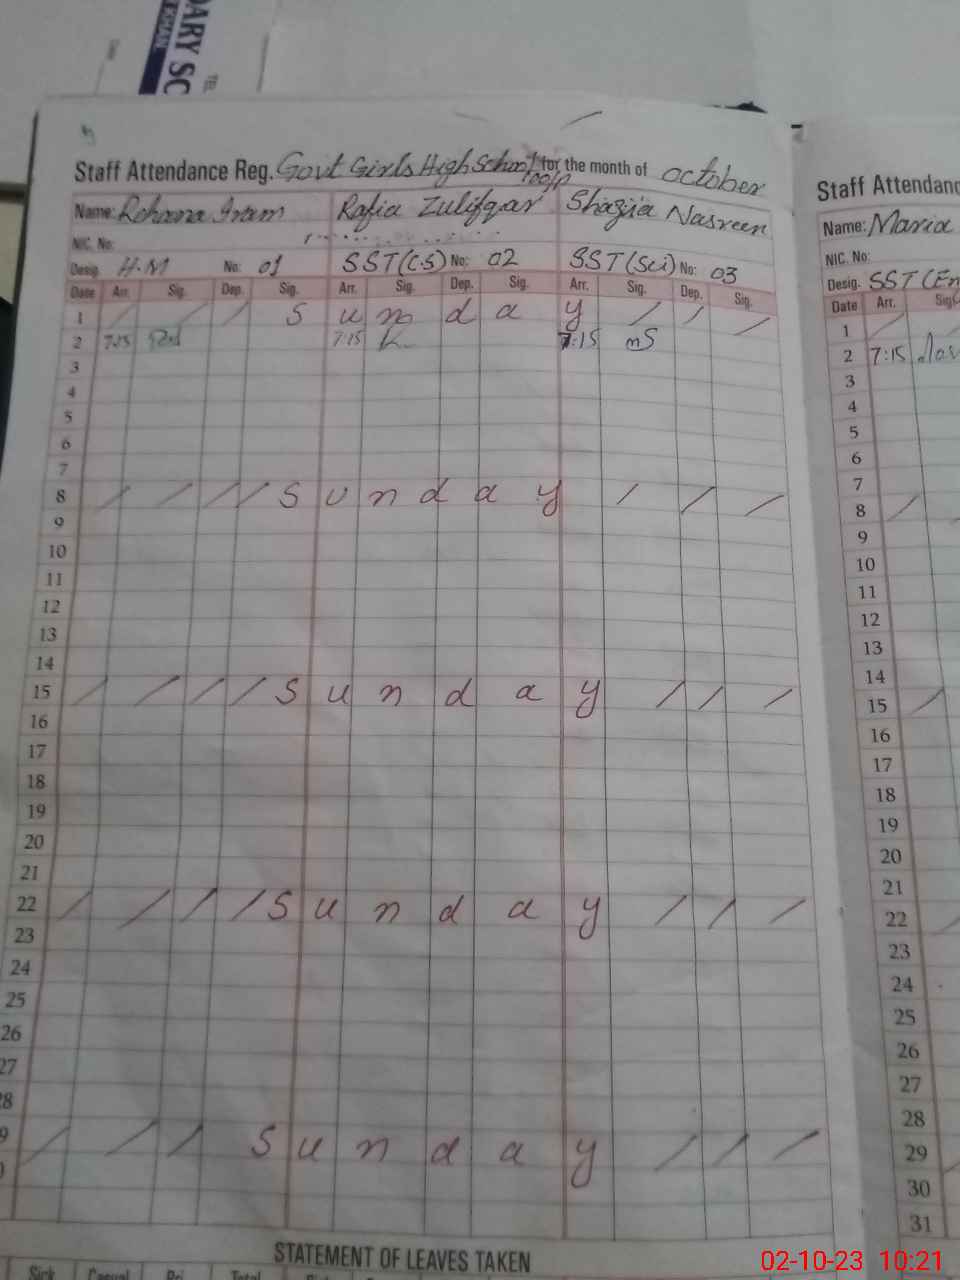 DARY SC
KHAN.
TE
Staff Attendance Reg. Govt Girls High School for the month of october
Name: Rohana Iram Rafia Zulifqar Shazia Nasreen
NIC. No:
Desig. H.M No: 01 SST(C.S) No: 02 SST(Sci) No: 03
Date Arr. Sig. Dep. Sig. Arr. Sig. Dep. Sig. Arr. Sig. Dep. Sig.
1 / / / S u n d a y / / /
2 7:15 7:15 7:15 mS
3
4
5
6
7
8 / / / / S u n d a y / / /
9
10
11
12
13
14
15 / / / / S u n d a y / / /
16
17
18
19
20
21
22 / / / / S u n d a y / / /
23
24
25
26
27
28
9 / / / S u n d a y / / /
STATEMENT OF LEAVES TAKEN
Sick Casual Pri. Total
Staff Attendanc
Name: Maria
NIC. No:
Desig. SST (En
Date Arr. Sig
1 /
2 7:15
3
4
5
6
7
8 /
9
10
11
12
13
14
15 /
16
17
18
19
20
21
22
23
24
25
26
27
28
29
30
31
02-10-23 10:21